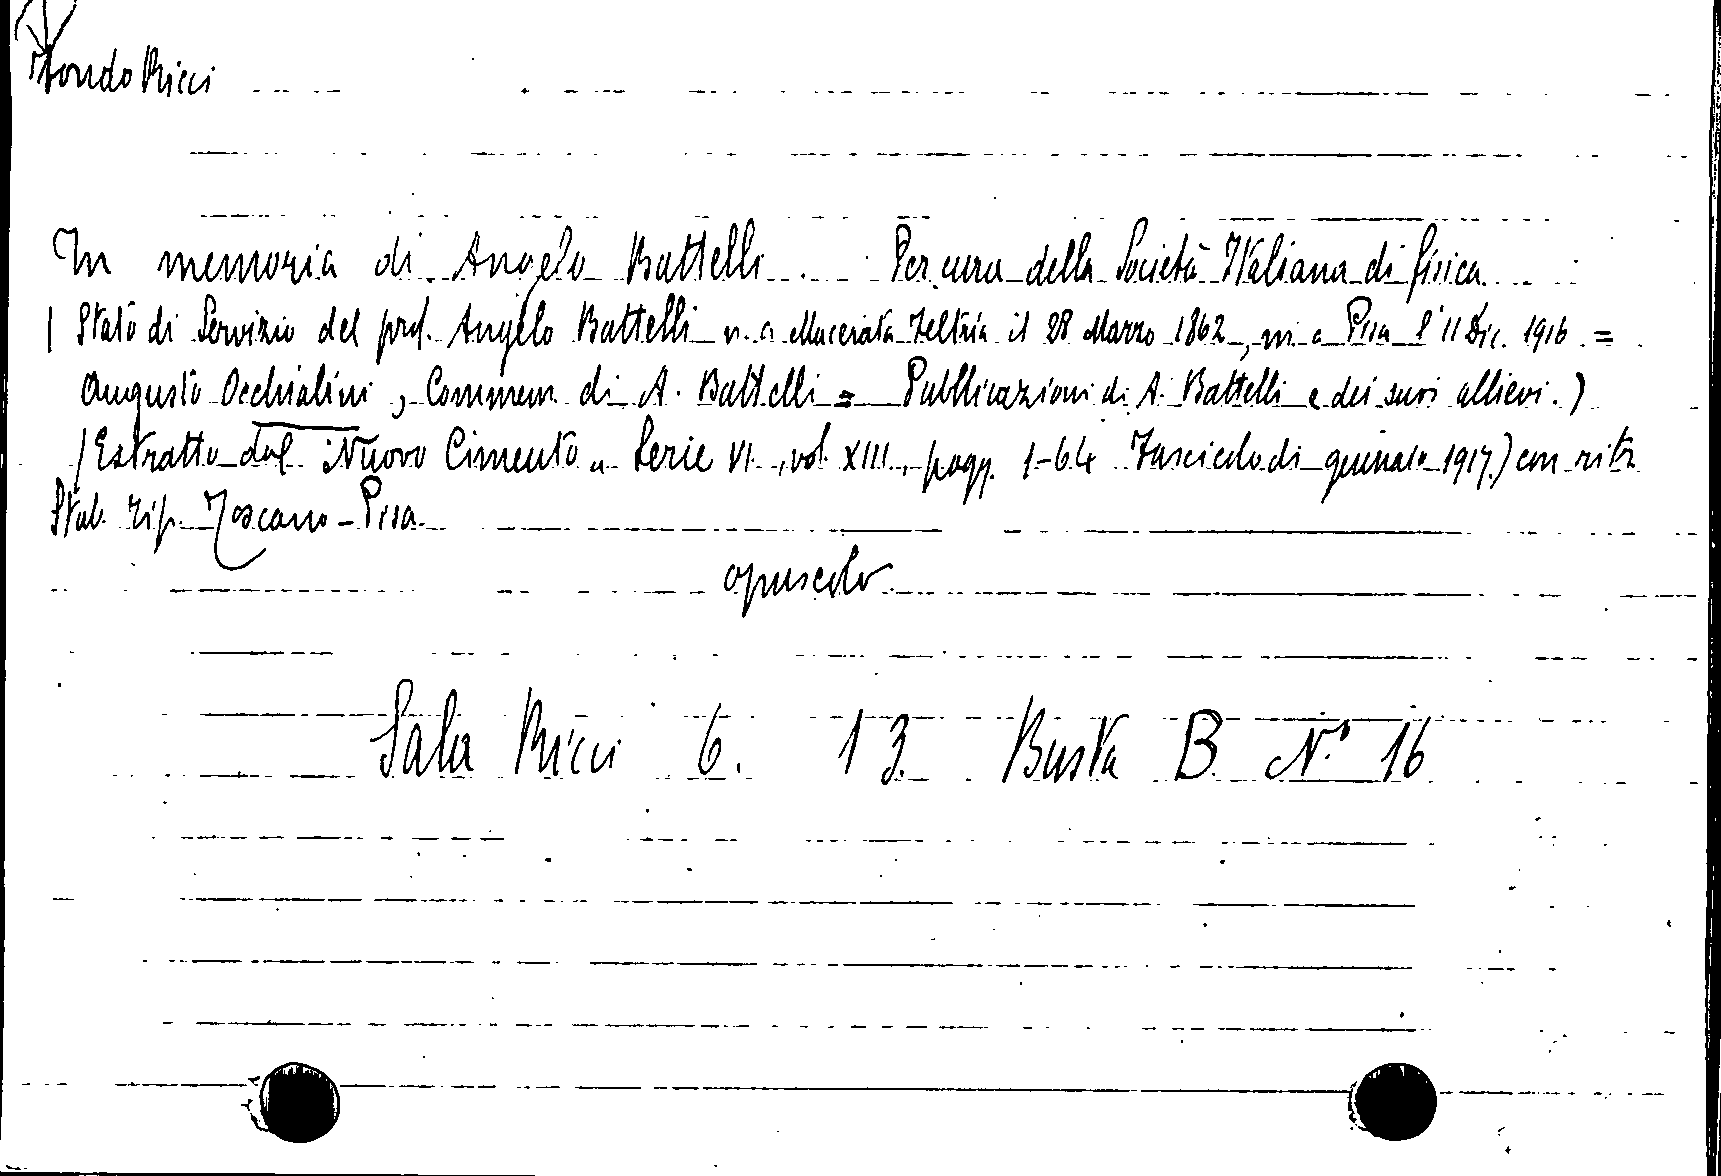 Fondo Ricci
In memoria di Angelo Battelli. Per cura della Società Italiana di fisica
( Stato di Servizio del prof. Angelo Battelli n. a Macerata Feltria il 28 Marzo 1862, m. a Pisa l'11 Dic. 1916 =
Augusto Occhialini, Commem. di A. Battelli = Pubblicazioni di A. Battelli e dei suoi allievi.)
(Estratto dal "Nuovo Cimento" Serie VI, vol. XIII, pagg. 1-64 Fascicolo di gennaio 1917.) con ritr.
Stab. Tip. Toscano - Pisa.
opuscolo
Sala Ricci 6. 13. Busta B. N.° 16